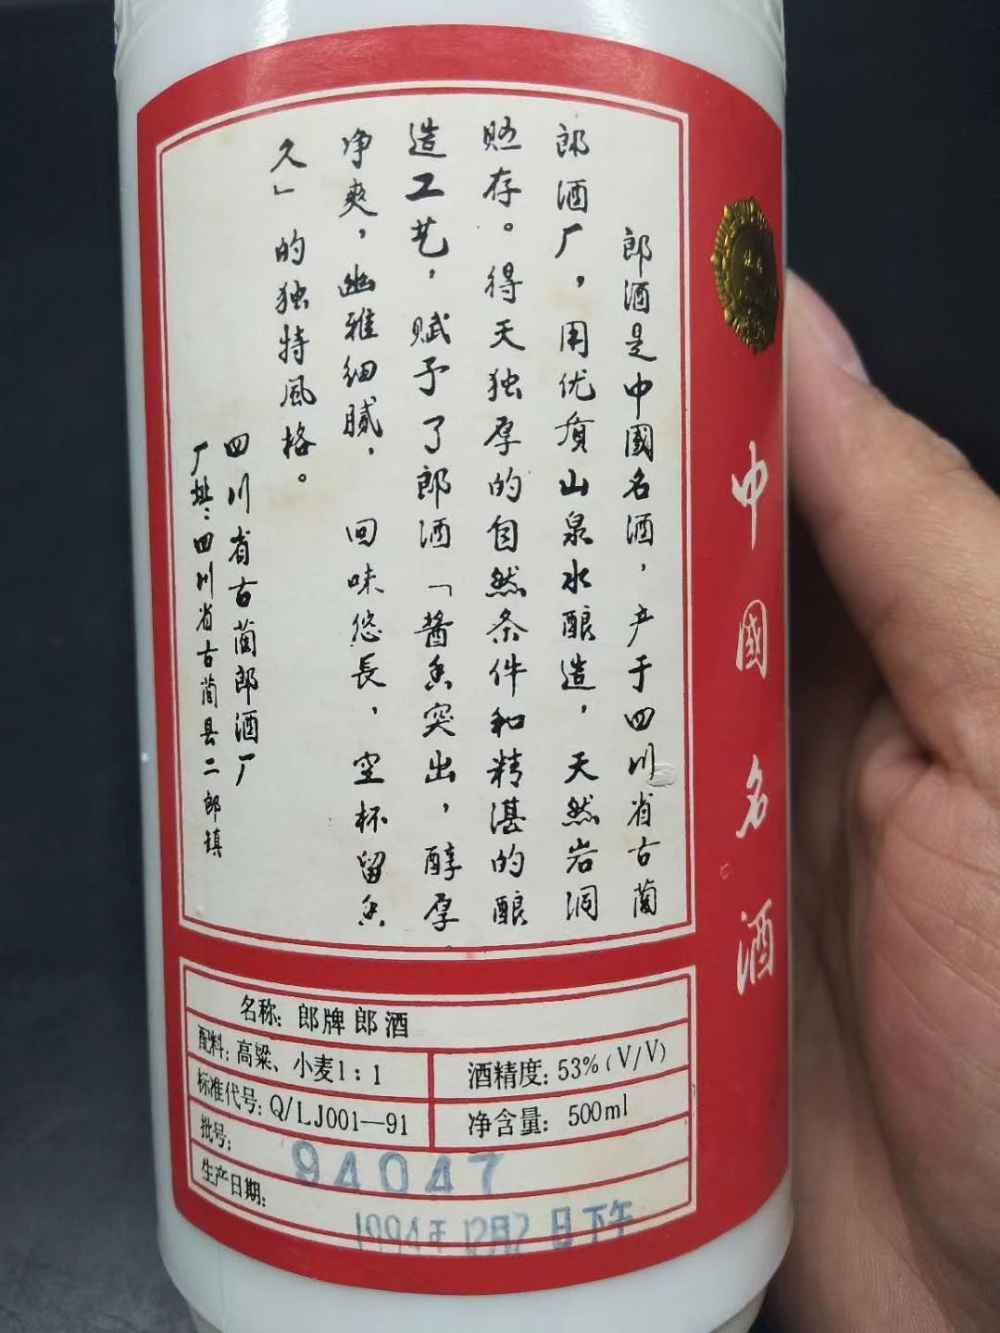 郎酒是中國名酒，产于四川省古蔺
郎酒厂，用优质山泉水酿造，天然岩洞
贮存。得天独厚的自然条件和精湛的酿
造工艺，赋予了郎酒「酱香突出，醇厚
净爽，幽雅细腻，回味悠長，空杯留香
久」的独特風格。
四川省古蔺郎酒厂
厂址：四川省古蔺县二郎镇
中國名酒
名称：郎牌郎酒
配料：高粱、小麦1：1
酒精度：53%(V/V)
标准代号：Q/LJ001—91
净含量：500ml
批号：94047
生产日期：1994年12月2日下午